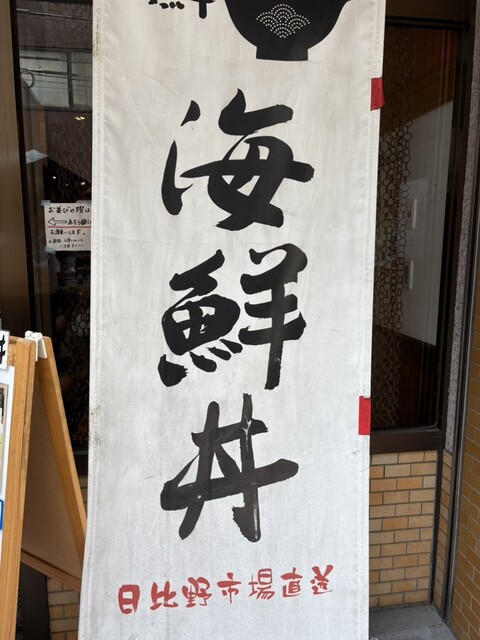 鮮
海鮮丼
日比野市場直送
お並びの際は
お願いします。